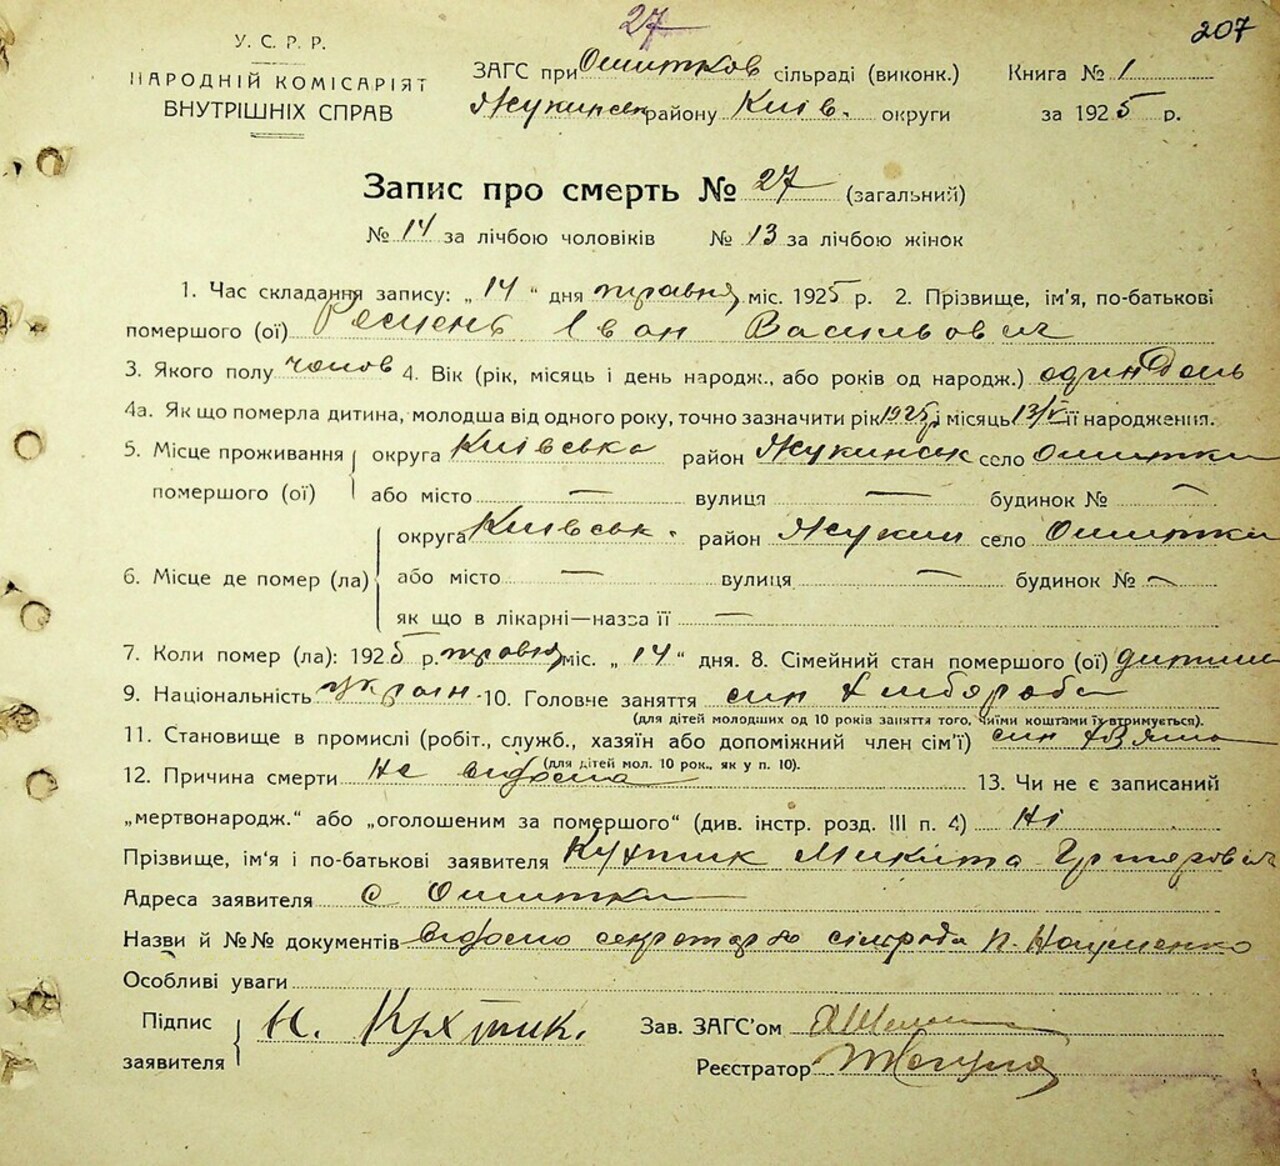 27
207
У. С. Р. Р.
НАРОДНІЙ КОМІСАРІЯТ
ВНУТРІШНІХ СПРАВ
ЗАГС при Ошитков сільраді (виконк.) Книга № 1
Жукинськ району Київ. округи за 1925 р.
Запис про смерть № 27 (загальний)
№ 14 за лічбою чоловіків № 13 за лічбою жінок
1. Час складання запису: „14“ дня травня міс. 1925 р. 2. Прізвище, ім’я, по-батькові
помершого (ої) Іван Васильович
3. Якого полу чолов 4. Вік (рік, місяць і день народж., або років од народж.) один день
4а. Як що померла дитина, молодша від одного року, точно зазначити рік 1925 і місяць 13/V її народження.
5. Місце проживання округа Київська район Жукинськ село Ошитки
помершого (ої) або місто — вулиця — будинок № —
округа Київськ. район Жукин село Ошитки
6. Місце де помер (ла) або місто — вулиця — будинок № —
як що в лікарні—назва її —
7. Коли помер (ла): 1925 р. травня міс. „14“ дня. 8. Сімейний стан помершого (ої) дитина
9. Національність україн 10. Головче заняття син хлібороба
(для дітей молодших од 10 років заняття того, чиїми коштами їх втримується).
11. Становище в промислі (робіт., служб., хазяїн або допоміжний член сім’ї) син
(для дітей мол. 10 рок., як у п. 10).
12. Причина смерти Не відома 13. Чи не є записаний
„мертвонародж.“ або „оголошеним за помершого“ (див. інстр. розд. III п. 4) Ні
Прізвище, ім’я і по-батькові заявителя Кухтик Микита Григорович
Адреса заявителя с Ошитки
Назви й №№ документів відомо секретарю сільрада п. Науменко
Особливі уваги
Підпис заявителя Н. Кухтик. Зав. ЗАГС’ом
Реєстратор